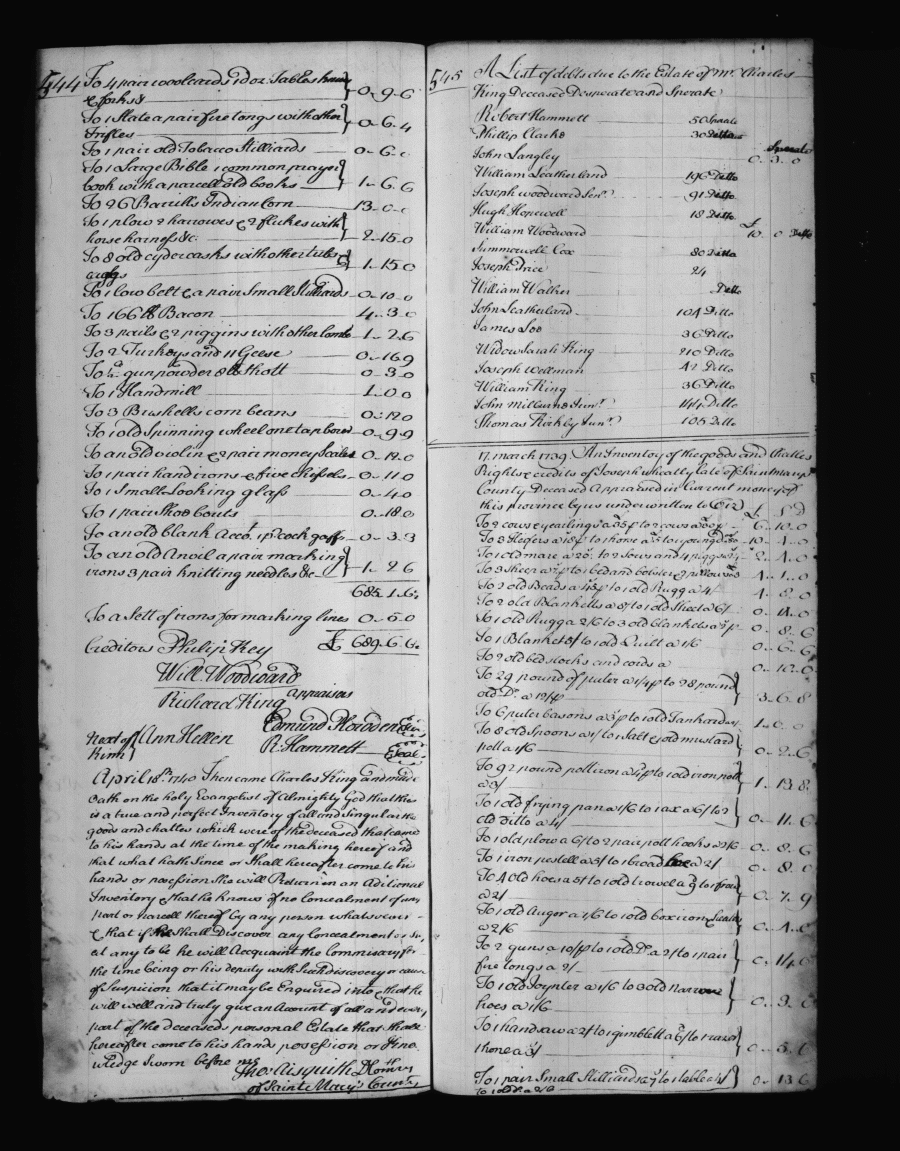 444 To 4 pair woolcards 1 doz: Tables knives
& forks &
0..9..6
To 1 Slate a pair fire tongs with other
Trifles
0..6..4
To 1 pair old Tobacco Stilliards
0..6..0
To 1 Large Bible 1 common prayer
book with a parcell old books
1..6..6
To 26 Barrells Indian Corn
13..0..0
To 1 plow 2 harrowes & 2 flukes with
horse harness &c
2..15..0
To 8 old cyder casks with other tubs &
1..15..0
To 1 Cow bell & a pair Small Stilliards
0..10..0
To 166 lb Bacon
4..3..0
To 3 pails & 2 piggins with other
1..2..6
To 2 Turkeys and 11 Geese
0..16..9
gun powder 8 lb shott
0..3..0
To 1 Handmill
1..0..0
To 3 Bushells corn beans
0..12..0
To 1 old Spinning wheel one tap bour
0..9..9
To an old violin & 2 pair money Scales
0..12..0
To 1 pair handirons & five Chissels
0..11..0
To 1 Small Looking glass
0..4..0
To 1 pair Shoe bouts
0..18..0
To an old blank Acct. 1 p. cock gaffs
0..3..3
To an old Anvil a pair marking
irons 3 pair knitting needles &c
1..2..6
685..1..6
To a Sett of irons for marking lines
0..5..0
Creditors Philip Key
£ 689..6..6
Will. Woodward
Richard King
appraisers
Edmund Plowden
Next of
Kinn
Ann Hellen
R. Hammett
Seal
April 18th. 1740 Then came Charles King and made
Oath on the holy Evangelist of Almighty God that this
is a true and perfect Inventory of all and Singular the
goods and chattles which were of the deceased that came
to his hands at the time of the making hereof and
that what hath Since or Shall hereafter come to his
hands or posession She will Return in an Aditional
Inventory & that he knows of no Concealment of any
part or parcell thereof by any person whatsoever
& that if he Shall Discover any Concealment or
at any to be he will Acquaint the Commissary for
the time being or his deputy with Such discovery or cause
of Suspicion that it may be Enquired into & that he
will well and truly give an Account of all and every
part of the deceased personal Estate that shall
hereafter come to his hands posession or Kno
wledge Sworn before me
Tho: Aisquith D Comry
of Saint Marys County
545 A List of debts due to the Estate of Mr. Charles
King Deceased Desperate and Sperate
Robert Hammett 50 Sperate
Phillip Clarke 30 Ditto
John Langley 0..3..0 Sperate
William Leatherland 196 Ditto
Joseph Woodward Senr. 91 Ditto
Hugh Hopewell 18 Ditto
William Woodward £ 10..0 Ditto
Summerwell Cox 80 Ditto
Joseph Price 24
William Walker Ditto
John Leatherland 104 Ditto
James Loe 36 Ditto
Widow Sarah King 210 Ditto
Joseph Wellman 42 Ditto
William King 36 Ditto
John Milburne Junr. 144 Ditto
Thomas Kirkby Junr. 105 Ditto
17. march 1739 An Inventory of the goods and Chattles
Rights & credits of Joseph Wheatly late of Saint marys
County Deceased Appraised in Current money of
this province by us underwritten to Wit
£ S D
To 2 cows & yearlings
6..10..0
To 3 Heifers
10..4..0
To 1 old mare a 20/. to 2 Sows and 4 piggs
2..4..0
To 3 Sheep to 1 bed and bolster 2 pillows
4..1..0
To 2 old Beads to 1 old Rugg a 4/
4..8..0
To 2 old Blanketts a 8/ to 1 old Sheet a 6/
To 1 old Rugg a 2/6 to 3 old blankets
0..8..6
To 1 Blanket to 1 old Quilt a 1/6
0..6..6
To 2 old bedstocks and cords a
0..10..0
To 29 pound of puter a 1/4 p to 28 pound
old Do. a
3..6..8
To 6 puter basons to 1 old Tankard
1..0..0
To 8 old Spoons a 1/ to 1 Salt & old mustard
poll a 1/6
0..2..6
To 92 pound pott iron to 1 old iron pott
1..13..8
To 1 old frying pan a 1/6 to 1 ax a 6/ to 2
old Ditto a 4/
0..11..6
To 1 old plow a 6/ to 2 pair pott hooks a 2/6
0..8..6
To 1 iron pestell a 5/ to 1 broad a 2/
0..8..0
To 4 old hoes a 5/ to 1 old trowel
a 2/
0..7..9
To 1 old Auger a 1/6 to 1 old box iron & heaters
a 2/6
0..4..0
To 2 guns a 10/p to 1 old Do. a 2/ to 1 pair
fire tongs a 2/
0..14..0
To 1 old Joynter a 1/6 to 3 old narrow
hoes a 1/6
0..3..0
To 1 handsaw a 2/ to 1 gimblett to 1 razor
& hone
0..5..6
To 1 pair Small Stilliards to 1 table
0..13..6